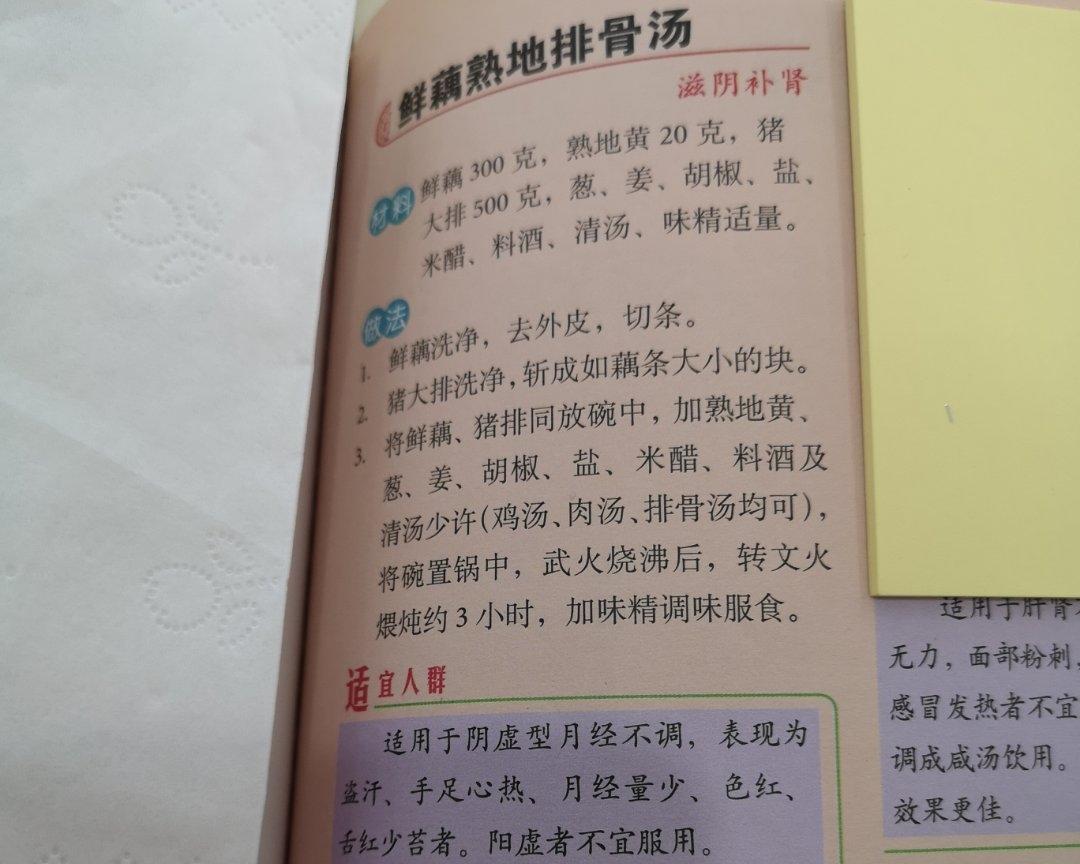 鲜藕熟地排骨汤
滋阴补肾
材料
鲜藕 300 克，熟地黄 20 克，猪
大排 500 克，葱、姜、胡椒、盐、
米醋、料酒、清汤、味精适量。
做法
1. 鲜藕洗净，去外皮，切条。
2. 猪大排洗净，斩成如藕条大小的块。
3. 将鲜藕、猪排同放碗中，加熟地黄、
葱、姜、胡椒、盐、米醋、料酒及
清汤少许（鸡汤、肉汤、排骨汤均可），
将碗置锅中，武火烧沸后，转文火
煨炖约 3 小时，加味精调味服食。
适宜人群
适用于阴虚型月经不调，表现为
盗汗、手足心热、月经量少、色红、
舌红少苔者。阳虚者不宜服用。
适用于肝肾
无力，面部粉刺，
感冒发热者不宜
调成咸汤饮用。
效果更佳。